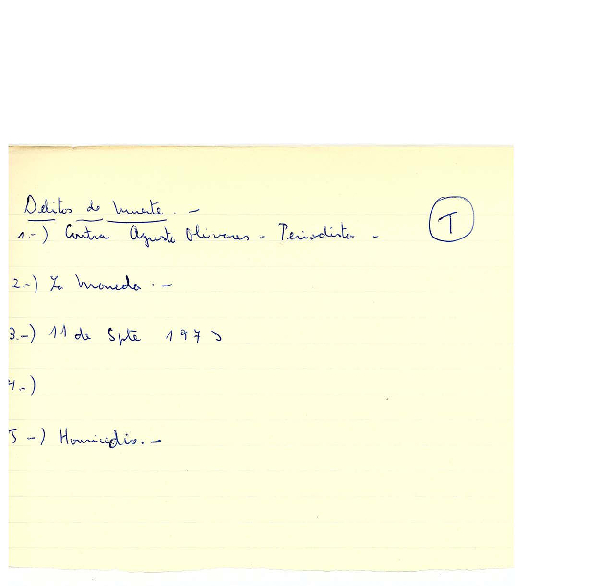 Delitos de muerte. -
T
1.-) Contra Augusto Olivares - Periodista -
2.-) La Moneda. -
3.-) 11 de Spte 1973
4.-)
5-) Homicidio. -